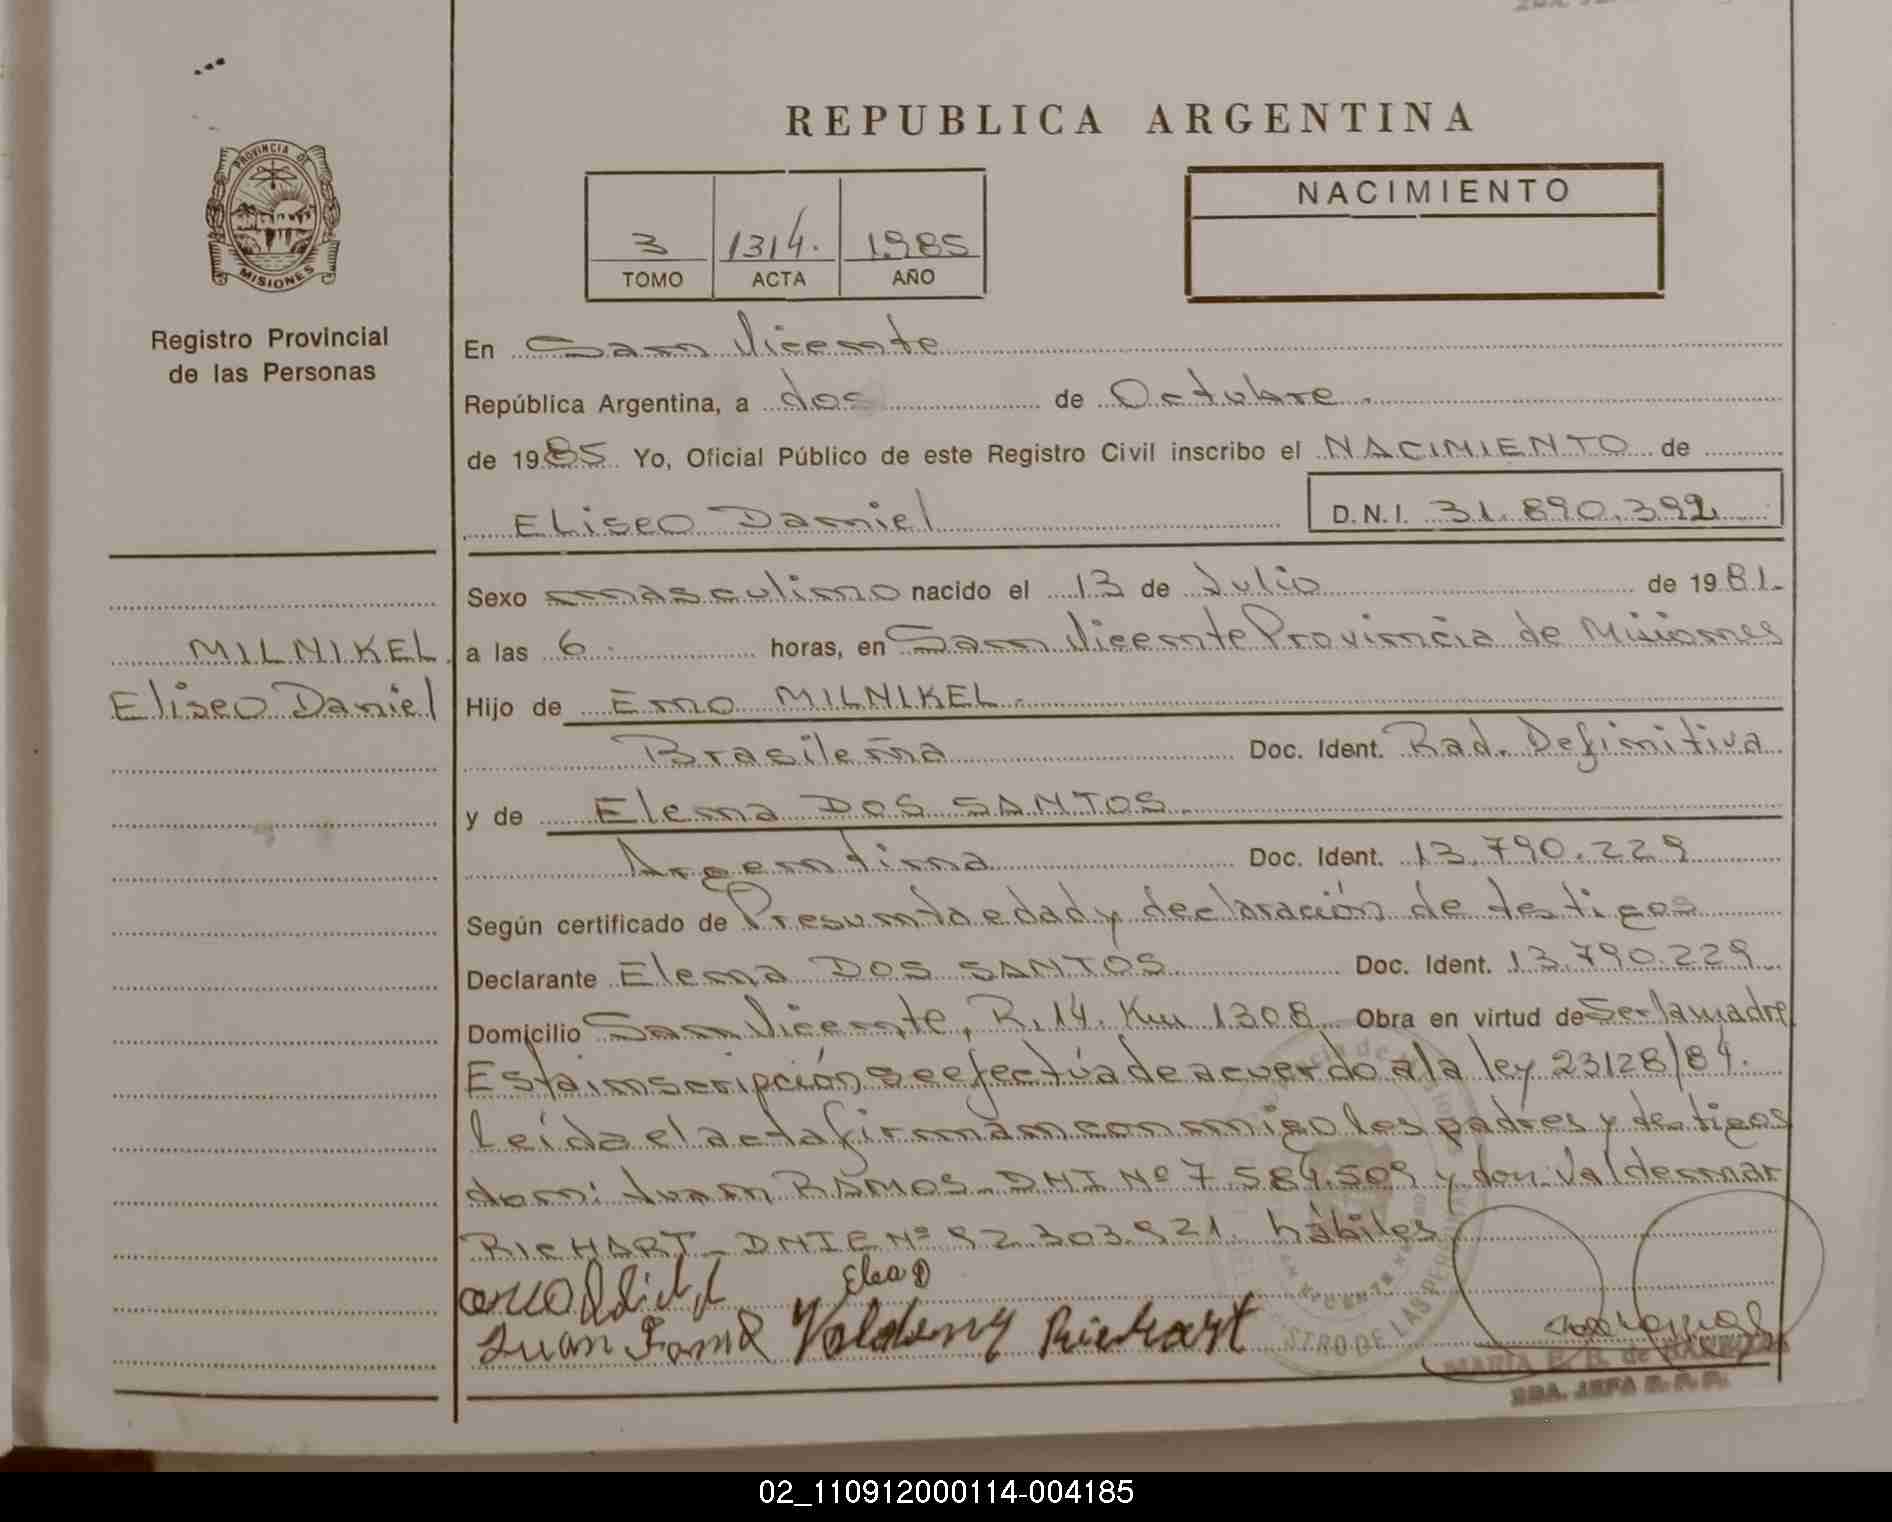 REPUBLICA ARGENTINA
PROVINCIA DE
MISIONES
Registro Provincial
de las Personas
3 1314. 1985
TOMO ACTA AÑO
NACIMIENTO
En San Vicente
República Argentina, a dos de Octubre.
de 1985 Yo, Oficial Público de este Registro Civil inscribo el NACIMIENTO de
Eliseo Daniel D.N.I. 31.890.392
MILNIKEL
Eliseo Daniel
Sexo masculino nacido el 13 de Julio de 1981.
a las 6. horas, en San Vicente Provincia de Misiones
Hijo de Eno MILNIKEL.
Brasileña Doc. Ident. Rad. Definitiva
y de Elena DOS SANTOS.
Argentina Doc. Ident. 13.790.229
Según certificado de Presunta edad y declaración de testigos
Declarante Elena DOS SANTOS Doc. Ident. 13.790.229
Domicilio San Vicente, R. 14. Km 1308 Obra en virtud de Ser la madre
Esta inscripción se efectúa de acuerdo a la ley 23128/84.
Leída el acta firman conmigo los padres y testigos
don: Juan RAMOS. DNI Nº 7.584.509 y don Valdemar
RICHART. DNIE Nº 92.303.921. hábiles
Elea D
Juan
Richart
MARIA E. B. de
JEFA
02_110912000114-004185